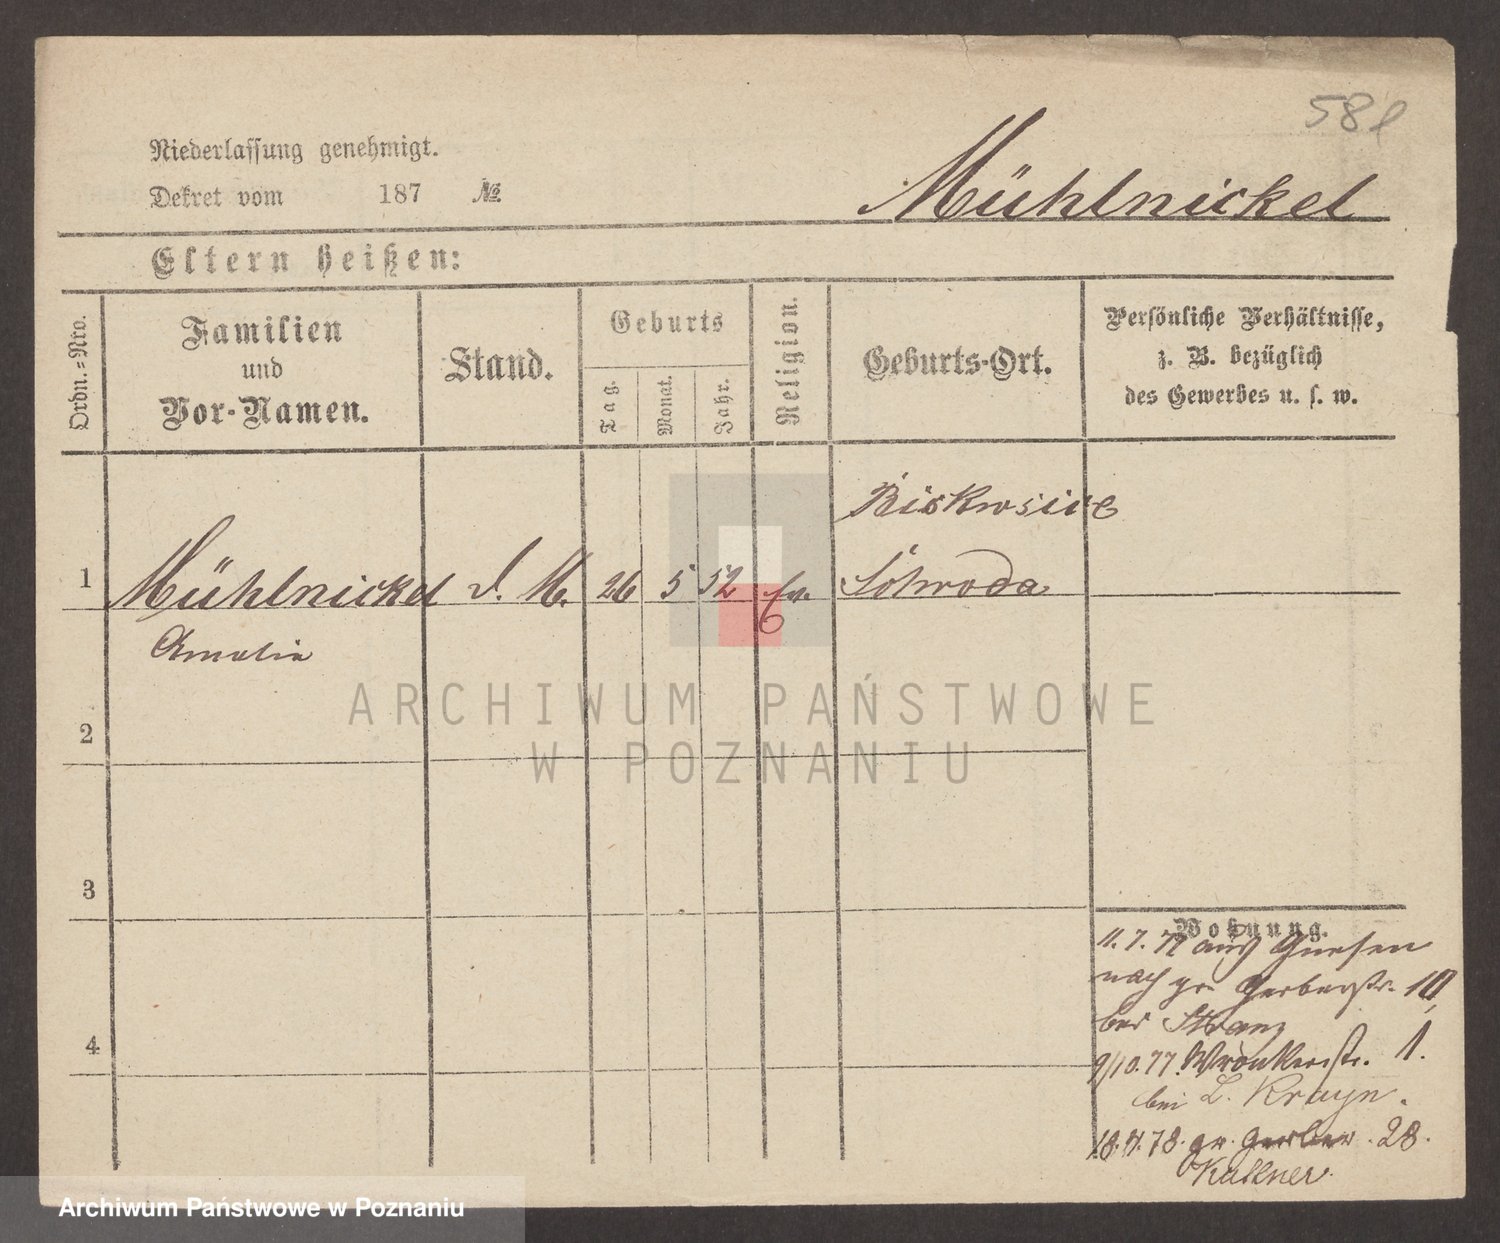 581
Niederlassung genehmigt.
Dekret vom 187 №
Mühlnickel
Eltern heißen:
Ordn.-Nro.
Familien
und
Vor-Namen.
Stand.
Geburts
Tag.
Monat.
Jahr.
Religion.
Geburts-Ort.
Persönliche Verhältnisse,
z. B. bezüglich
des Gewerbes u. s. w.
1
Mühlnickel d. M. 26 5 52 Ev. Schroda
Amalie
2
3
4
Wohnung.
11. 7. 77 aus Gnesen
nach gr. Gerberstr. 10,
bei
9/10. 77. Wronkerstr. 1.
bei L. Krayn.
18. 4. 78. gr. Gerber. 28.
Kallner.
ARCHIWUM PAŃSTWOWE
W POZNANIU
Archiwum Państwowe w Poznaniu